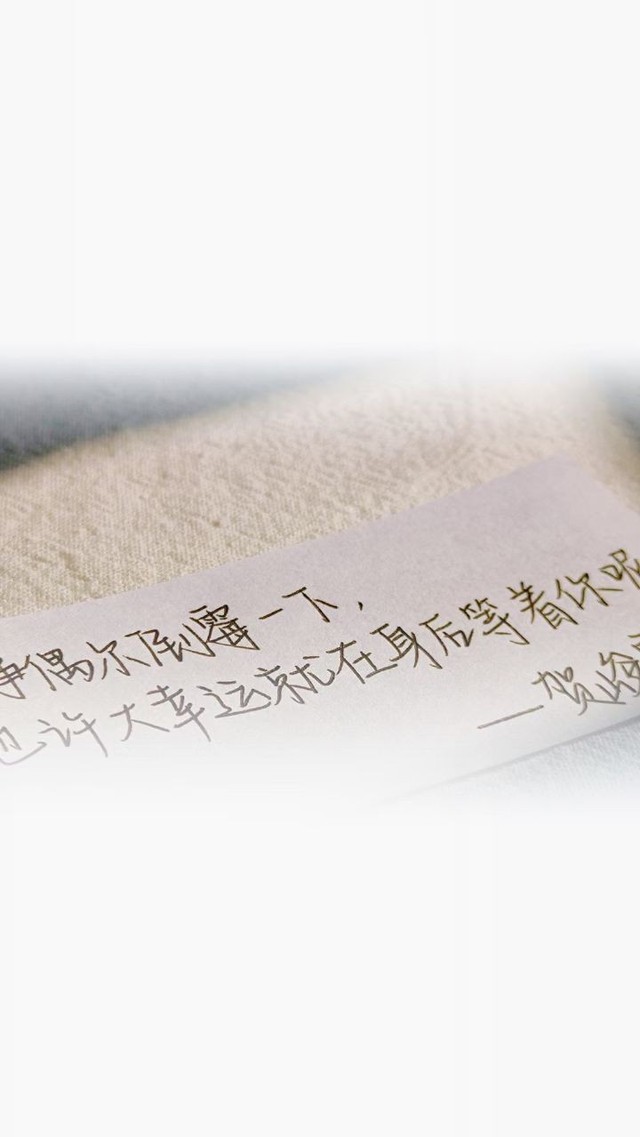 偶尔倒霉一下，
也许大幸运就在身后等着你呢
—贺峻